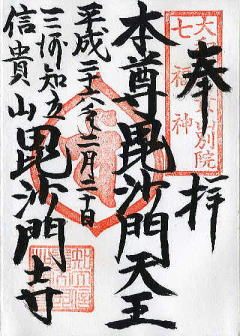 奉拝
本尊毘沙門天王
平成二十八年二月二十日
三州知立
信貴山
毘沙門寺
七福神
別院